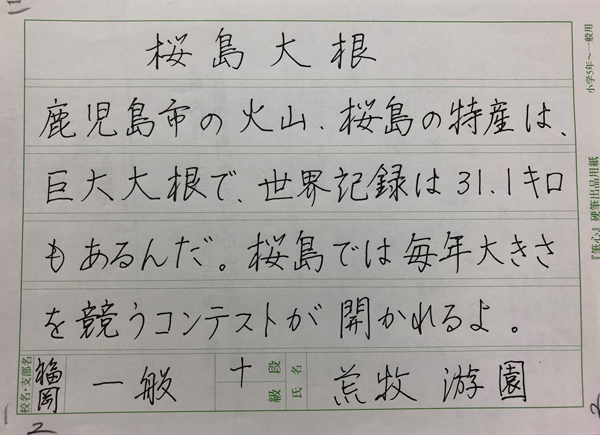 桜島大根
鹿児島市の火山、桜島の特産は、
巨大大根で、世界記録は31.1キロ
もあるんだ。桜島では毎年大きさ
を競うコンテストが開かれるよ。
校名・支部名 福岡 一般 十 段 級 氏名 荒牧 游園
小学5年〜一般用
『筆心』硬筆出品用紙
二
一
2
2